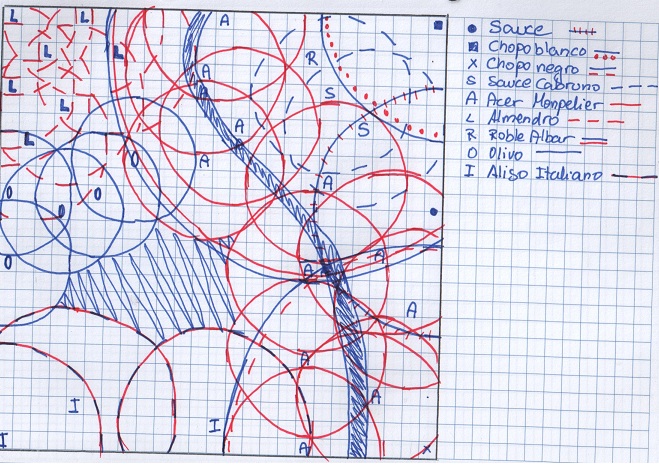 L L L A
L L R
L A S
L A S
L O A A
O O O
O A A
A
A
I I A
I A x
● Sauce
■ Chopo blanco
x Chopo negro
S Sauce Cabruno
A Acer Monpelier
L Almendro
R Roble Albar
O Olivo
I Aliso Italiano